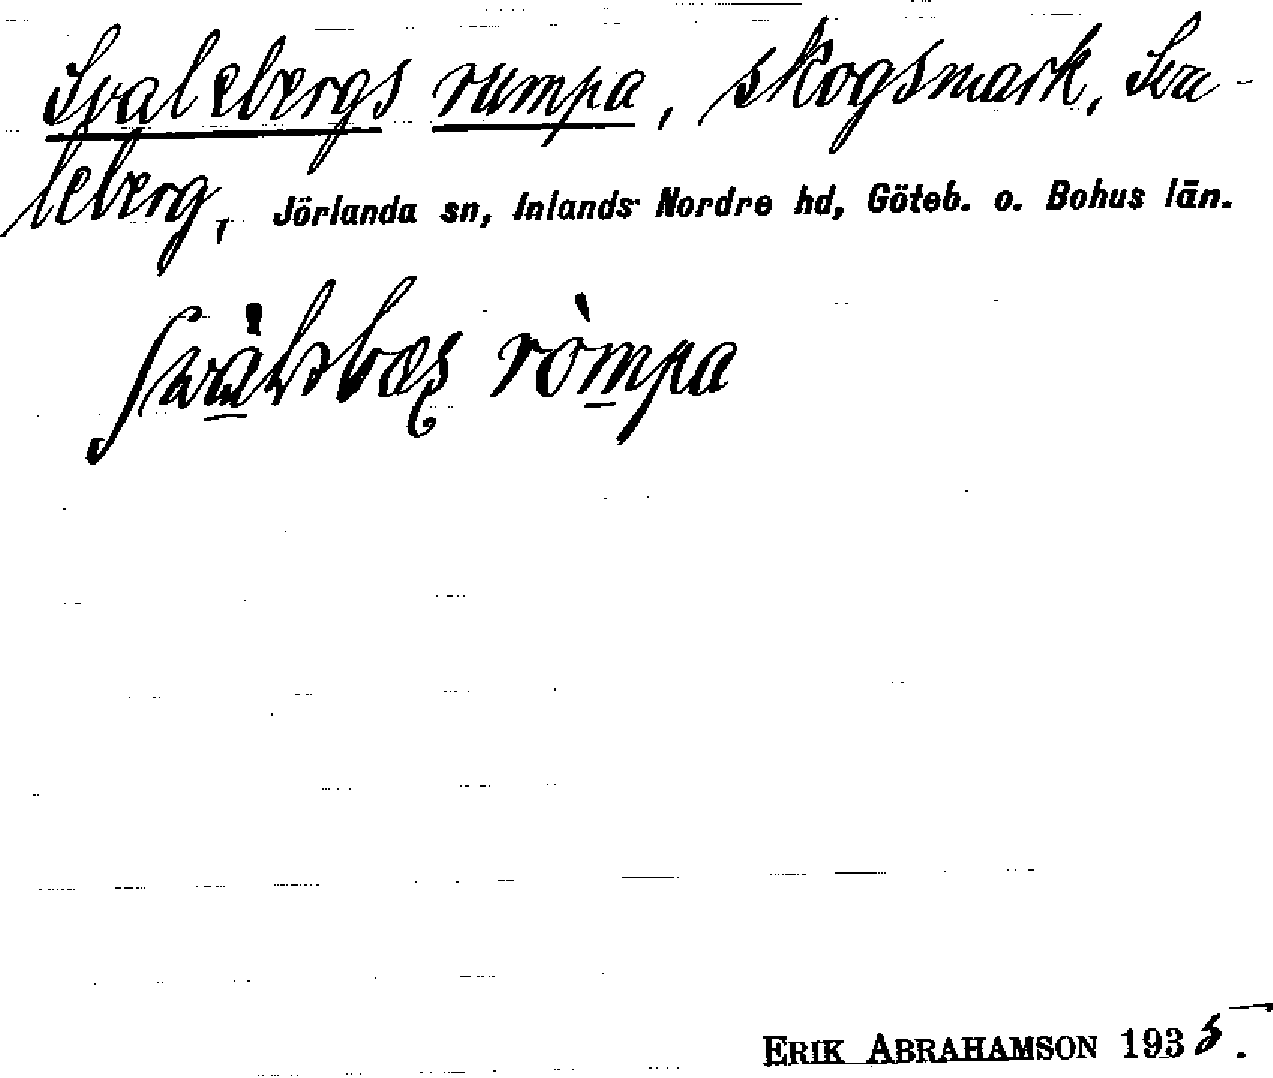 Svalebergs rumpa, skogsmark, Sva-
leberg, Jörlanda sn, Inlands Nordre hd, Göteb. o. Bohus län.
ròmpa
ERIK ABRAHAMSON 1935.